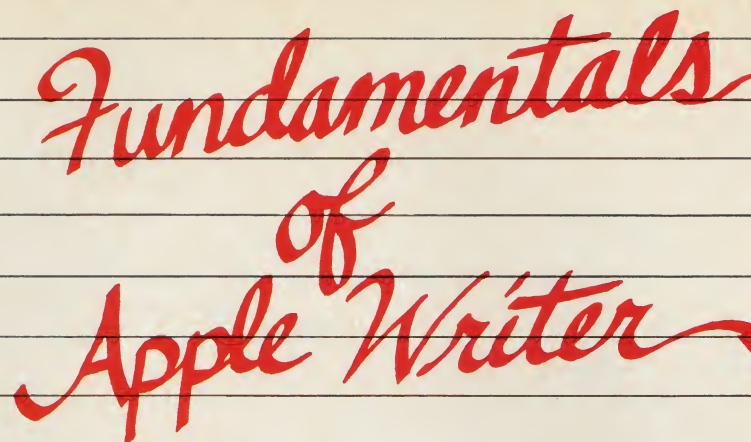 Fundamentals
of
Apple Writer